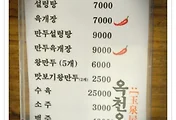 설렁탕 7000
육개장 7000
만두설렁탕 9000
만두육개장 9000
왕만두 (5개) 6000
맛보기왕만두(2개) 2500
수육 25000
소주 3000
맥주
옥천옹
玉泉